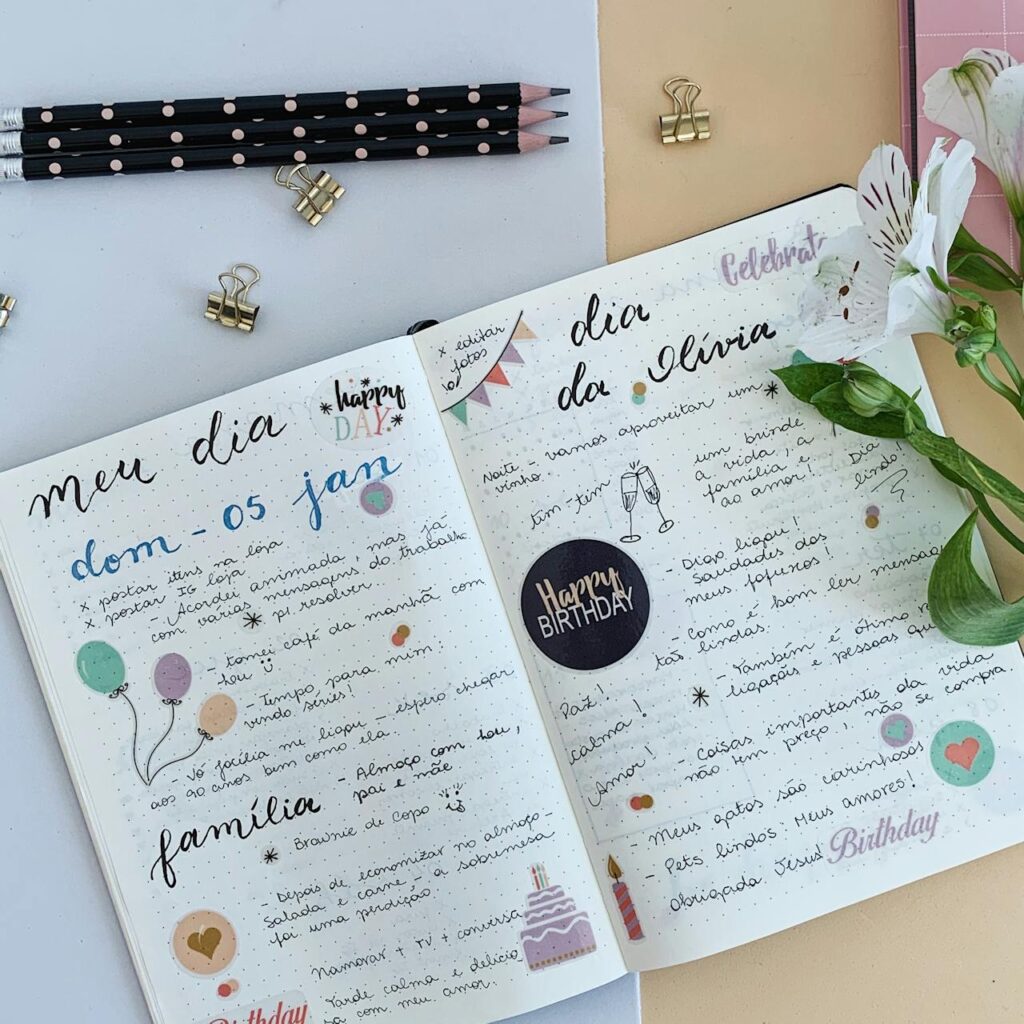 meu dia
happy
DAY
dom - 05 jan
x postar itens na loja
x postar IG loja
- Acordei animada, mas já
com várias mensagens do trabalho
p/ resolver.
- tomei café da manhã com
heu
- Tempo para mim:
vendo séries!
- Vó Jacília me ligou - espero chegar
aos 90 anos bem como ela.
família
- Almoço com heu,
pai e mãe
Brownie de Copo
- Depois de economizar no almoço -
salada e carne - a sobremesa
foi uma perdição.
Namorar + TV + conversa
Tarde calma e delicio
sa com meu amor.
Birthday
x editar
fotos
dia
da Olívia
Celebrat
Noite - vamos aproveitar um
vinho.
tim-tim
um brinde
a vida, a
família e
ao amor! Dia
lindo!
Happy
BIRTHDAY
- Digo ligou!
Saudades dos
meus fofuxos!
- Como é bom ler mensagen
tão lindas.
- Também é ótimo
ligações e pessoas
Paz!
calma!
Amor!
- Coisas importantes da vida
não tem preço, não se compra
- Meus gatos são carinhosos
- Pets lindos! Meus amores!
Obrigada Jesus!
Birthday